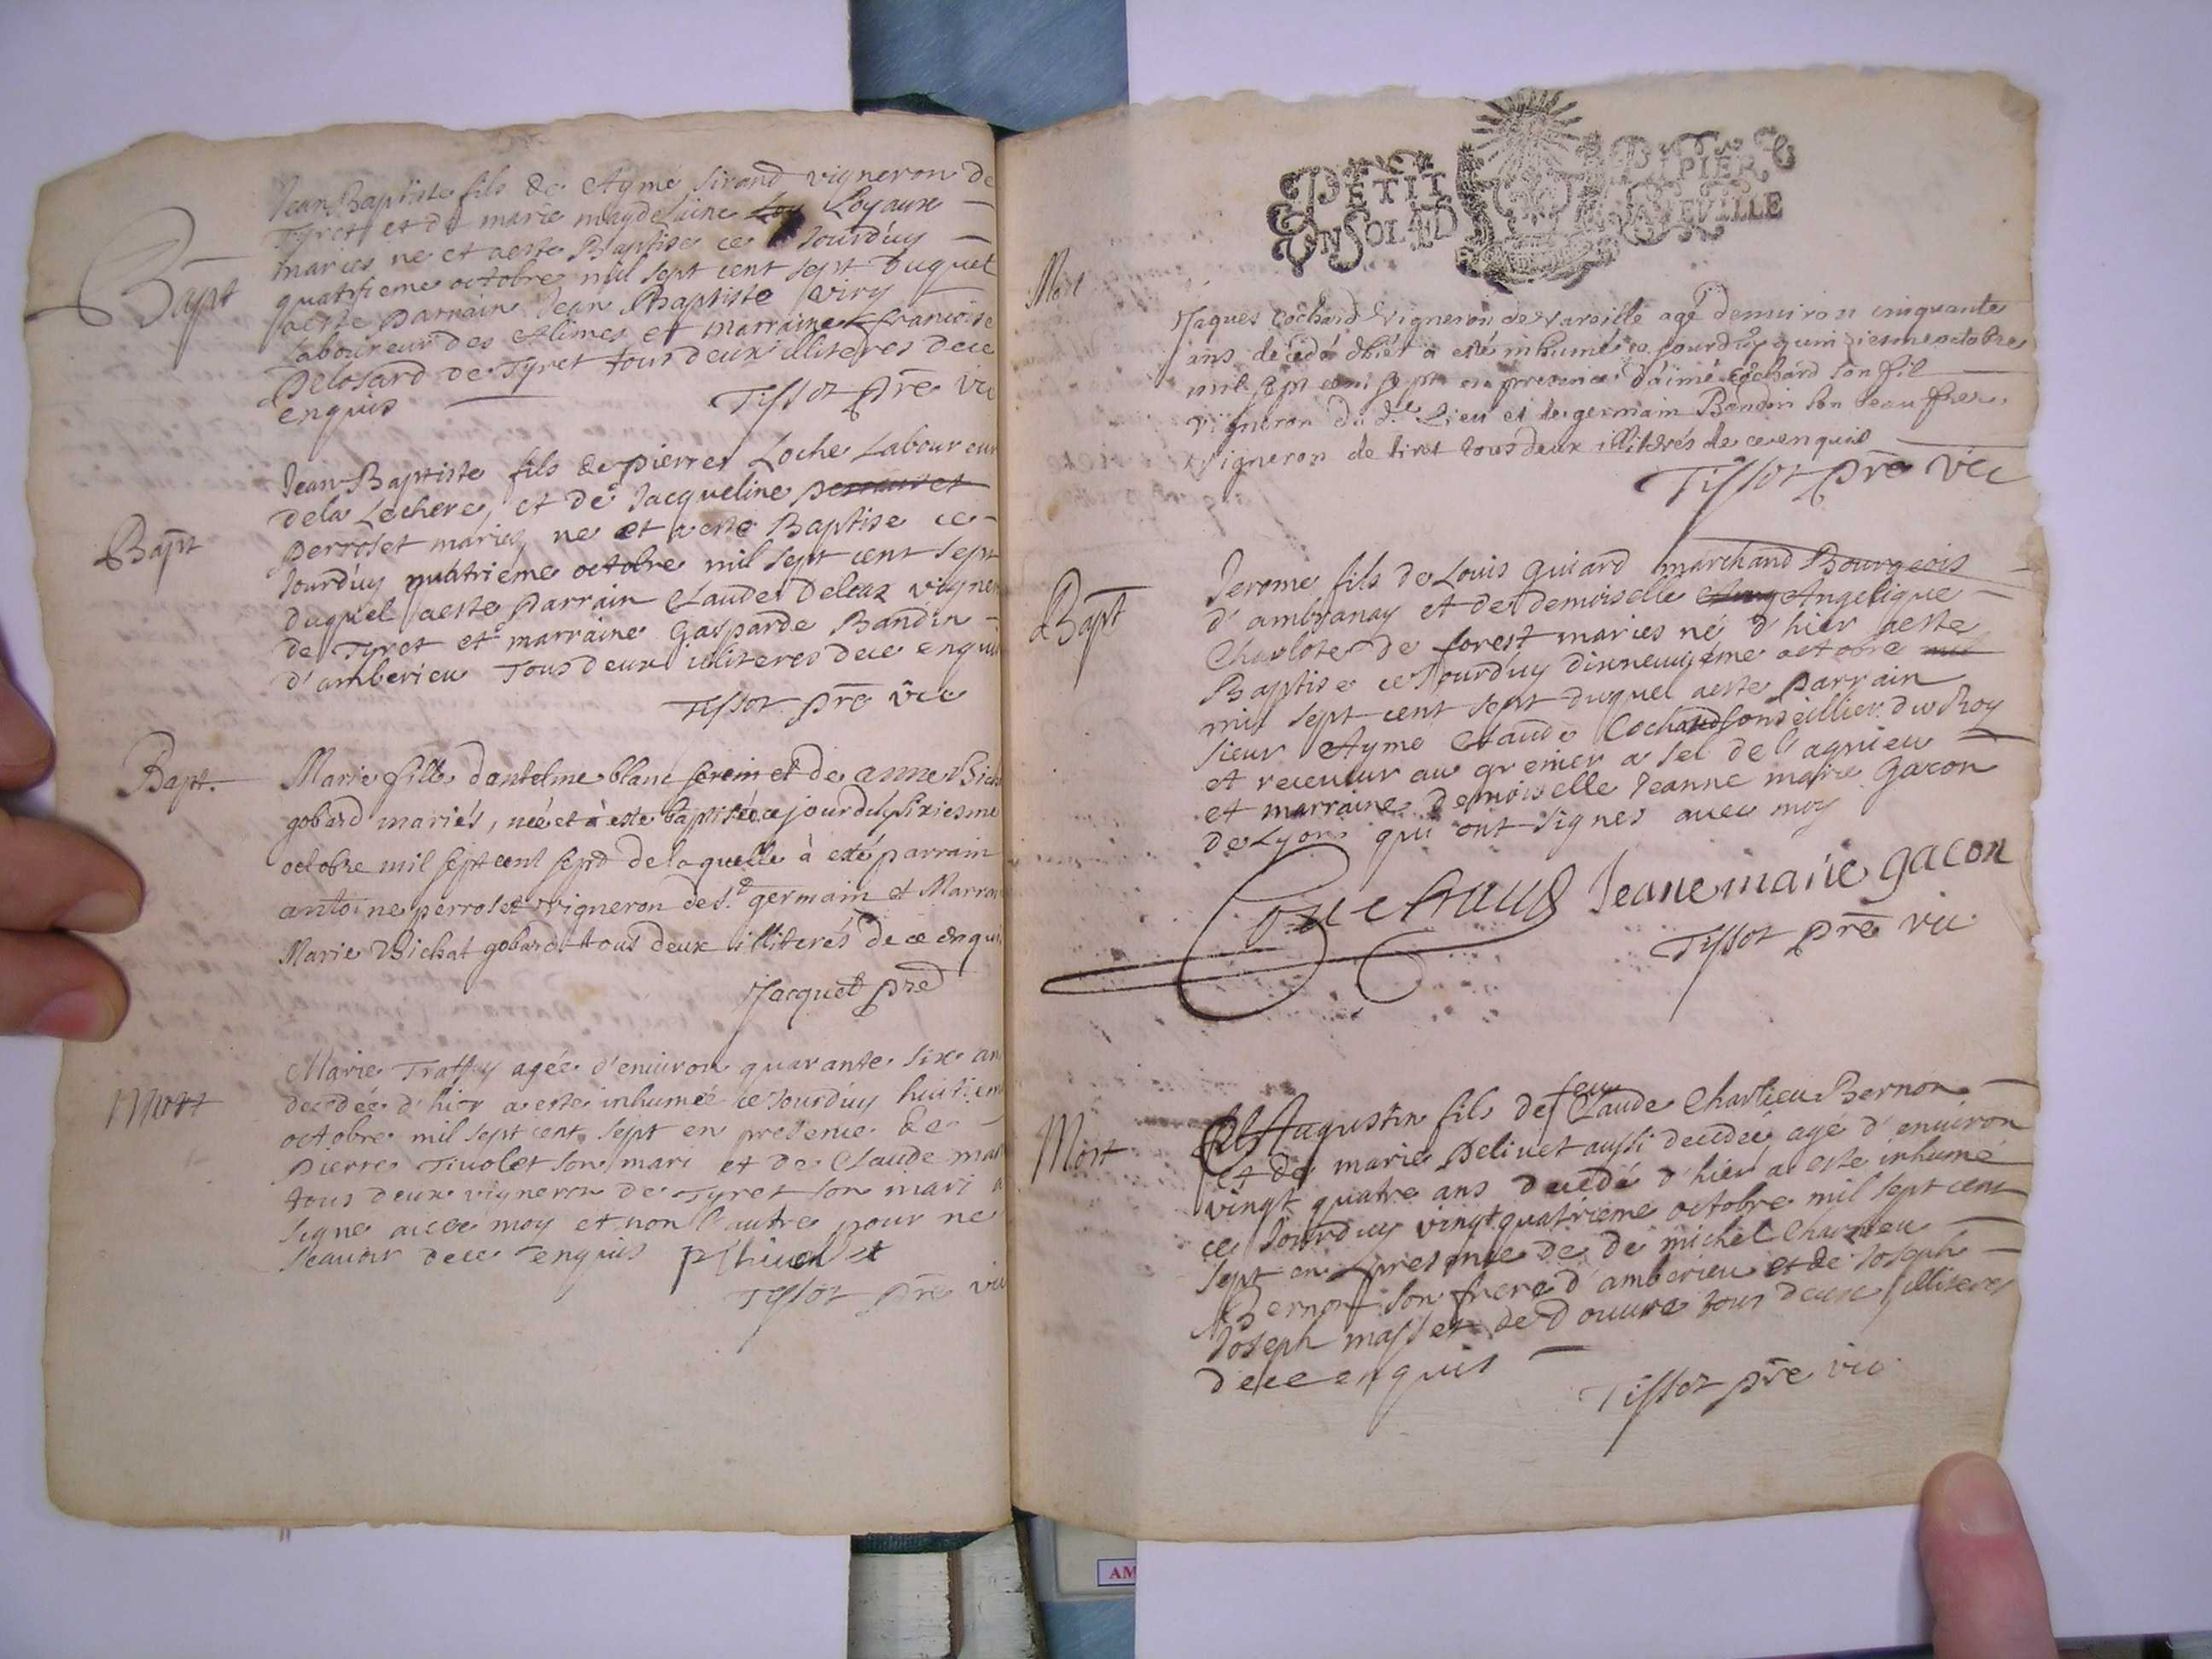 Bapt
Jean Baptiste fils de Aymé Sirand vigneron de
Tyret et de marie magdelaine Loyaux
maries ne et a este Baptise ce Jourduy
quatrieme octobre mil sept cent sept duquel
a este parrain Jean Baptiste Viry
Laboureur des Alimes et marraine francoise
Pelosard de Tyret tous deux illiteres de ce
enquis
Tissot pre vic
Bapt
Jean Baptiste fils de pierre Loche Laboureur
de la Lechere, et de Jacqueline
perroset maries ne et a este Baptise ce
Jourduy quatrieme octobre mil sept cent sept
duquel a este parrain Claude vigner
de Tyret et marraine Gasparde Bandin
d'amberieu Tous deux illiteres de ce enquis
Tissot pre vic
Bapt.
Marie fille dantelme blanc et de anne Bich
gobard mariés, née et à esté baptisée ce jourduy sixiesme
octobre mil sept cent sept de laquelle à esté parrain
antoine perroset vigneron de st germain et Marra
Marie Bichat gobard tous deux illiterés de ce enqui
Jacquet pre
Mort
Marie Traffey agée d'environ quarante six an
decedée d'hier a esté inhumée ce Jourduy huitiem
octobre mil sept cent sept en presence de
pierre Tivolet son mari et de Claude mar
tous deux vigneron de Tyret son mari a
signe avec moy et non l'autre pour ne
scavoir de ce enquis p thivollet
Tissot pre vic
PETIT PAPIER
UN SOL 4 D LA FEVILLE
Mort
Jaques Cochard vigneron de Vareille agé denviron cinquante
ans decedé dhier a esté inhumé ce jourduy quinziesme octobre
mil sept cent sept en presence d'aimé Cochard son fil
vigneron du dt Lieu et de germain Bandin son beau frere
vigneron de tiret tous deux illiterés de ce enquis
Tissot pre vic
Bapt
Jerome fils de Louis Guirard marchand Bourgeois
d'ambranay et de demoiselle Angelique
Charlote de forest maries né d'hier a este
Baptise ce Jourduy dixneuvieme octobre mil
mil sept cent sept duquel a este parrain
sieur Aymé Claude Cochaud Conseillier du Roy
et receveur au grenier a sel de l'agnieu
et marraine demoiselle Jeanne marie Gacon
de Lyon qui ont signes avec moy
Couchaud Jeane marie gacon
Tissot pre vic
Mort
Augustin fils de feu Claude Charlieu Bernon
et de marie Pelivet aussi decedée agé d'environ
vingt quatre ans decedé d'hier a este inhumé
ce Jourduy vingt quatrieme octobre mil sept cent
sept en presence de de michel Charlieu
Bernon son frere d'amberieu et de Joseph
Joseph masset de Douvre tous deux illiteres
de ce enquis
Tissot pre vic